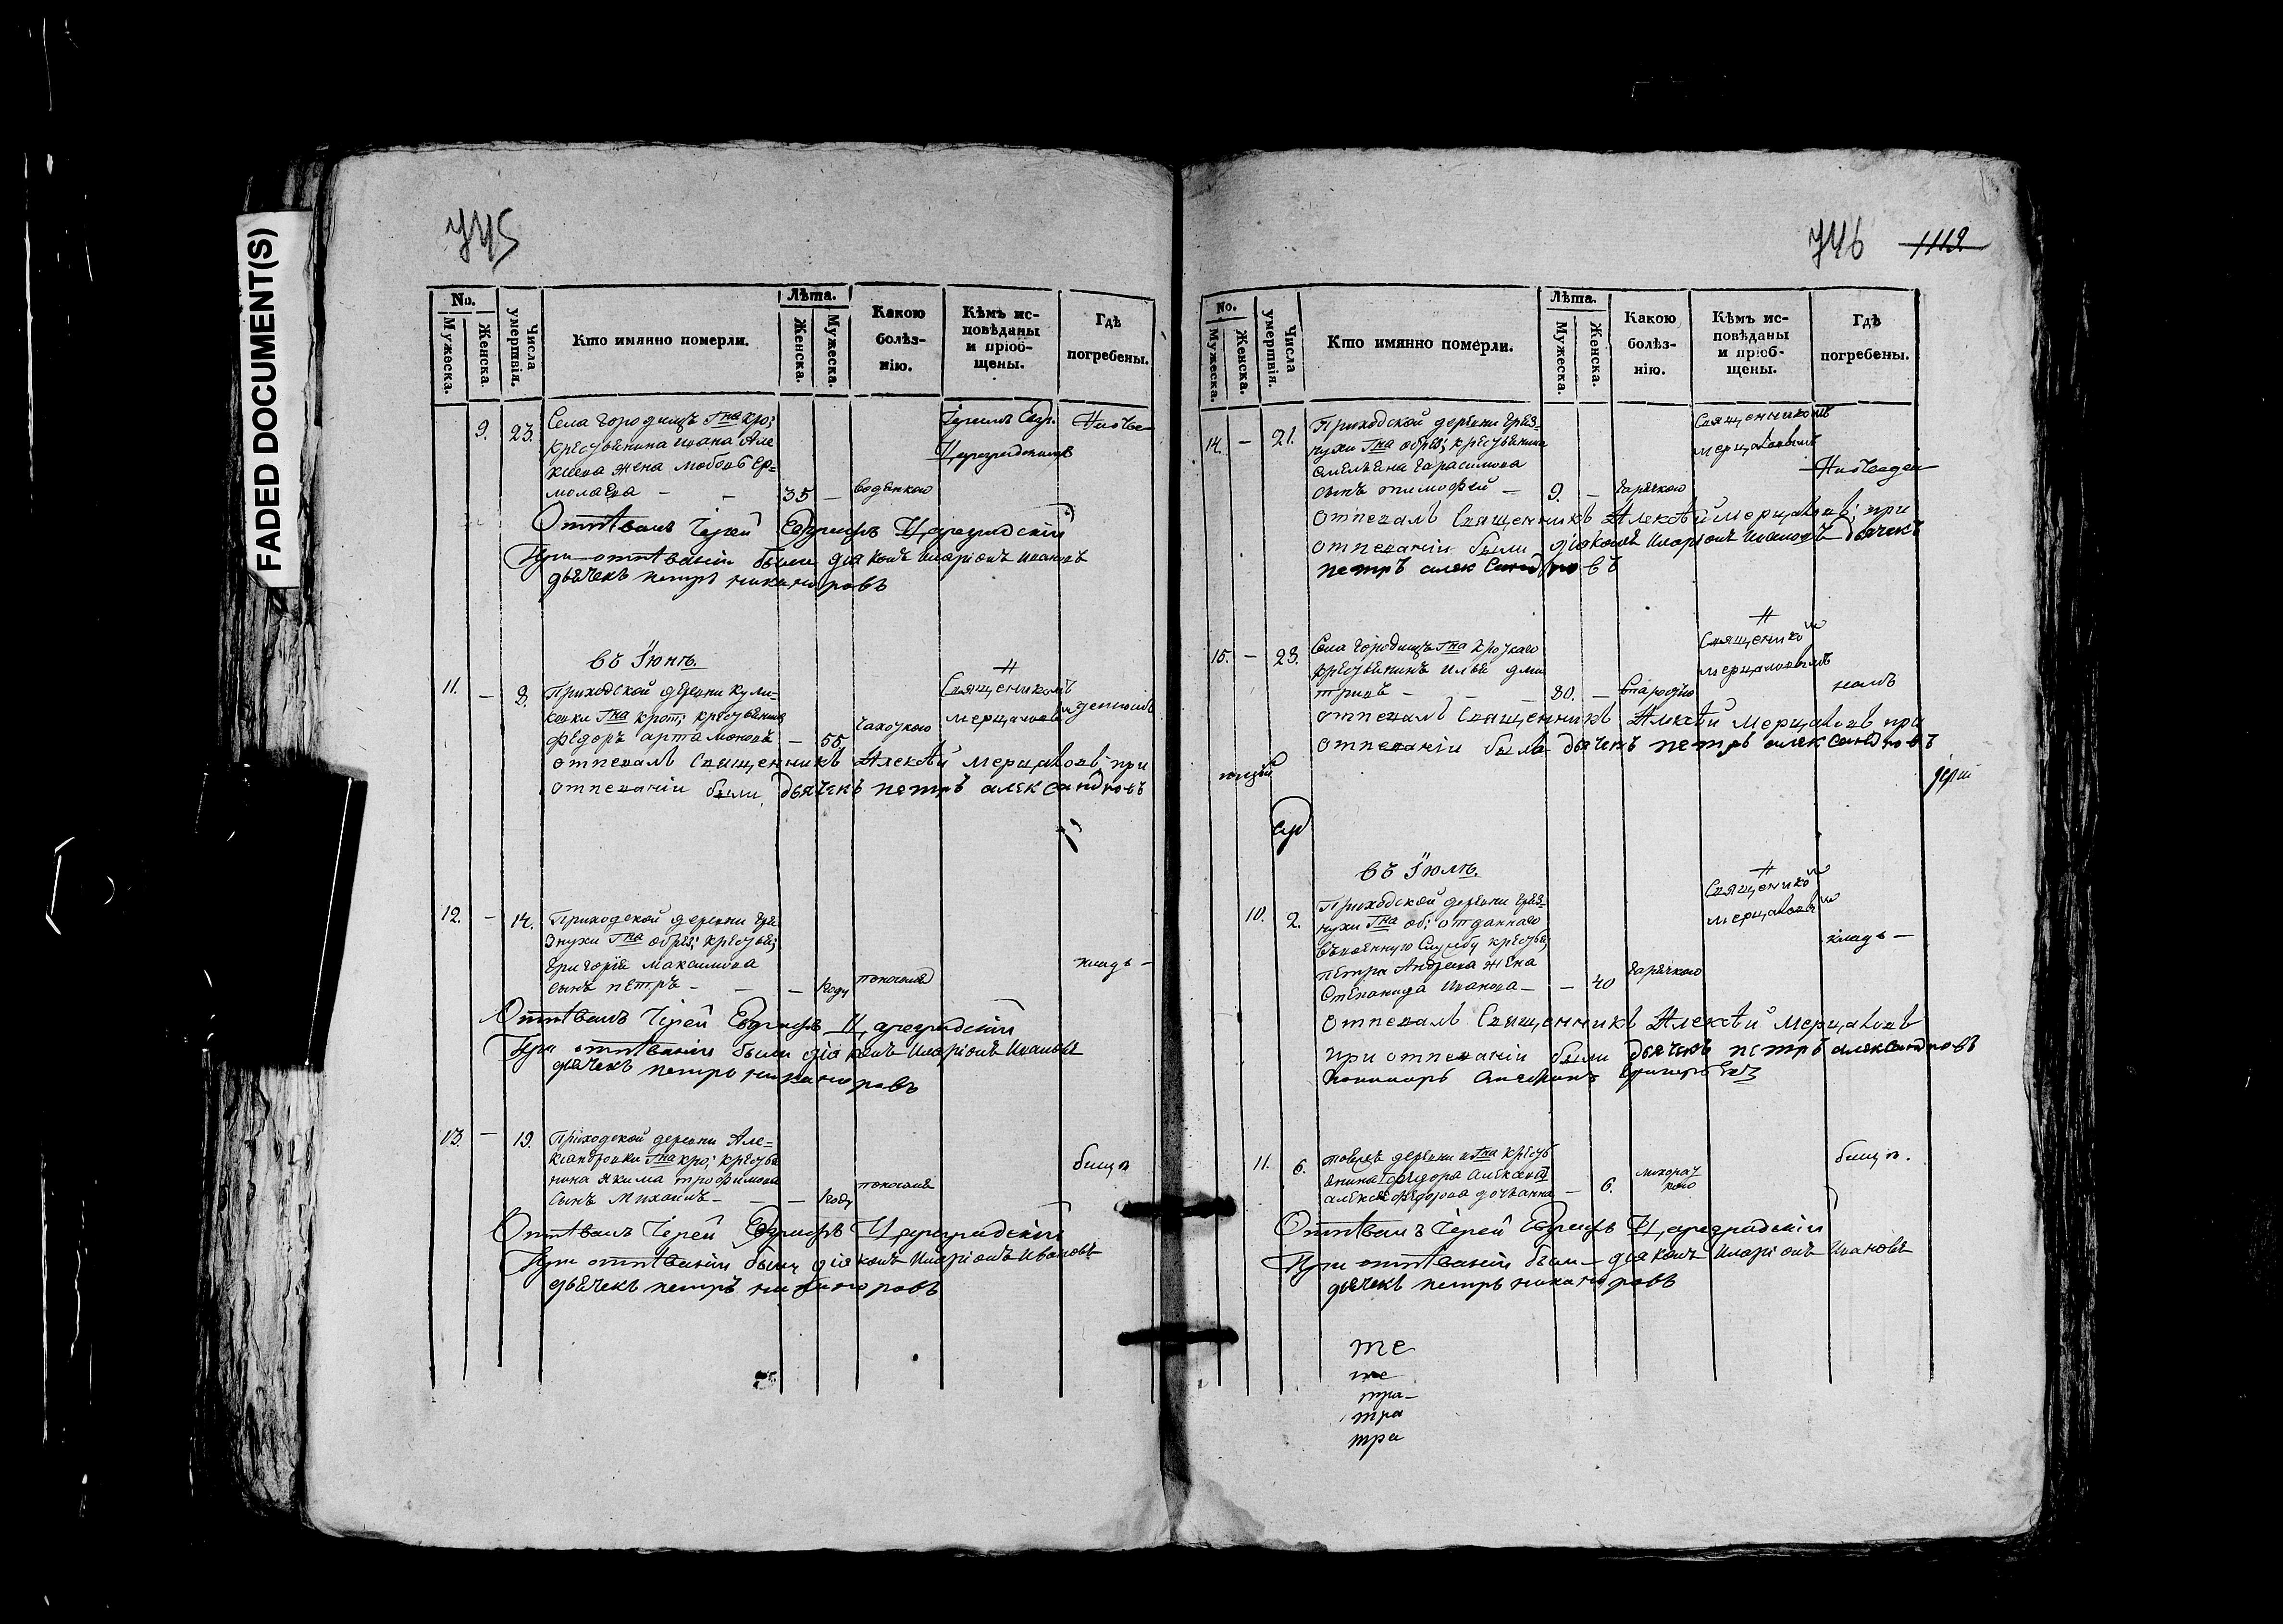 FADED DOCUMENT(S)
745
No.
Мужеска.
Женска.
Числа умертвія.
Кто имянно померли.
Лѣта.
Женска.
Мужеска.
Какою болѣз-нію.
Кѣмъ ис-повѣданы и пріоб-щены.
Гдѣ погребены.
9. 23. Села Городищъ Гна кро;
крестьянина Ивана Але
ксеева жена Любовь Ер=
молаева - - 35 - водянкою
Отпѣвалъ Іерей Евграфъ Цареградскій
При отпѣваніи были діаконъ Иларіонъ Ивановъ
дьячекъ петръ никаноровъ
въ Іюнѣ.
11. - 8. Приходской деревни Кули-
ковки Гна крот; крестьянинъ
Федоръ Артамоновъ - 55 чахоткою
Священникомъ
Мерцаловым
отпевалъ Священникъ Алексѣй Мерцаловъ; при
отпеваніи были дьячекъ петръ александровъ
12. - 14. Приходской деревни Гря
знухи Гна обрез; крестья;
Григорія Максимова
сынъ петръ - - - году
кладь -
Отпѣвалъ Іерей Евграфъ Цареградскій
При отпѣваніи были діаконъ Иларіонъ Ивановъ
дьячекъ петръ никаноровъ
13. - 19. Приходской деревни Але=
ксандровки Гна кро; крестья
нина Якима Трофимова
сынъ Михаилъ - - - году
бищ
Отпѣвалъ Іерей Евграфъ Цареградскій
При отпѣваніи были діаконъ Иларіонъ Ивановъ
дьячекъ петръ никаноровъ
746 1112
No.
Мужеска.
Женска.
Числа умертвія.
Кто имянно померли.
Лѣта.
Мужеска.
Женска.
Какою болѣз-нію.
Кѣмъ ис-повѣданы и пріоб-щены.
Гдѣ погребены.
14. - 21. Приходской деревни Гряз=
нухи Гна обрез; крестьянина
Емельяна Гарасимова
сынъ тимофей - 9. - горячкою
Священникомъ
Мерцаловымъ
отпевалъ Священникъ Алексѣй Мерцаловъ; при
отпеваніи были діаконъ Иларіонъ Ивановъ дьячекъ
петръ александровъ
15. - 23. Села Городищъ Гна Кроткаго
крестьянинъ Илья Дми
тріевъ - - - 80. - старостію
Священико м
Мерцаловымъ
отпевалъ Священникъ Алексѣй Мерцаловъ при
отпеваніи были дьячекъ петръ александровъ
въ Іюлѣ.
10. 2. Приходской деревни Гряз=
нухи Гна об; отданнаго
въ военную Службу крестья;
петра Андреева жена
Степанида Иванова - - 40 горячкою
Священико м
Мерцаловы м
кладь -
отпевалъ Священникъ Алексѣй Мерцаловъ
при отпеваніи были дьячекъ петръ александровъ
11. 6. тоежъ деревни
дочь анна - 6.
бищ
Отпѣвалъ Іерей Евграфъ Цареградскій
При отпѣваніи были діаконъ Иларіонъ Ивановъ
дьячекъ петръ никаноровъ
те
те
тра-
тра
тра